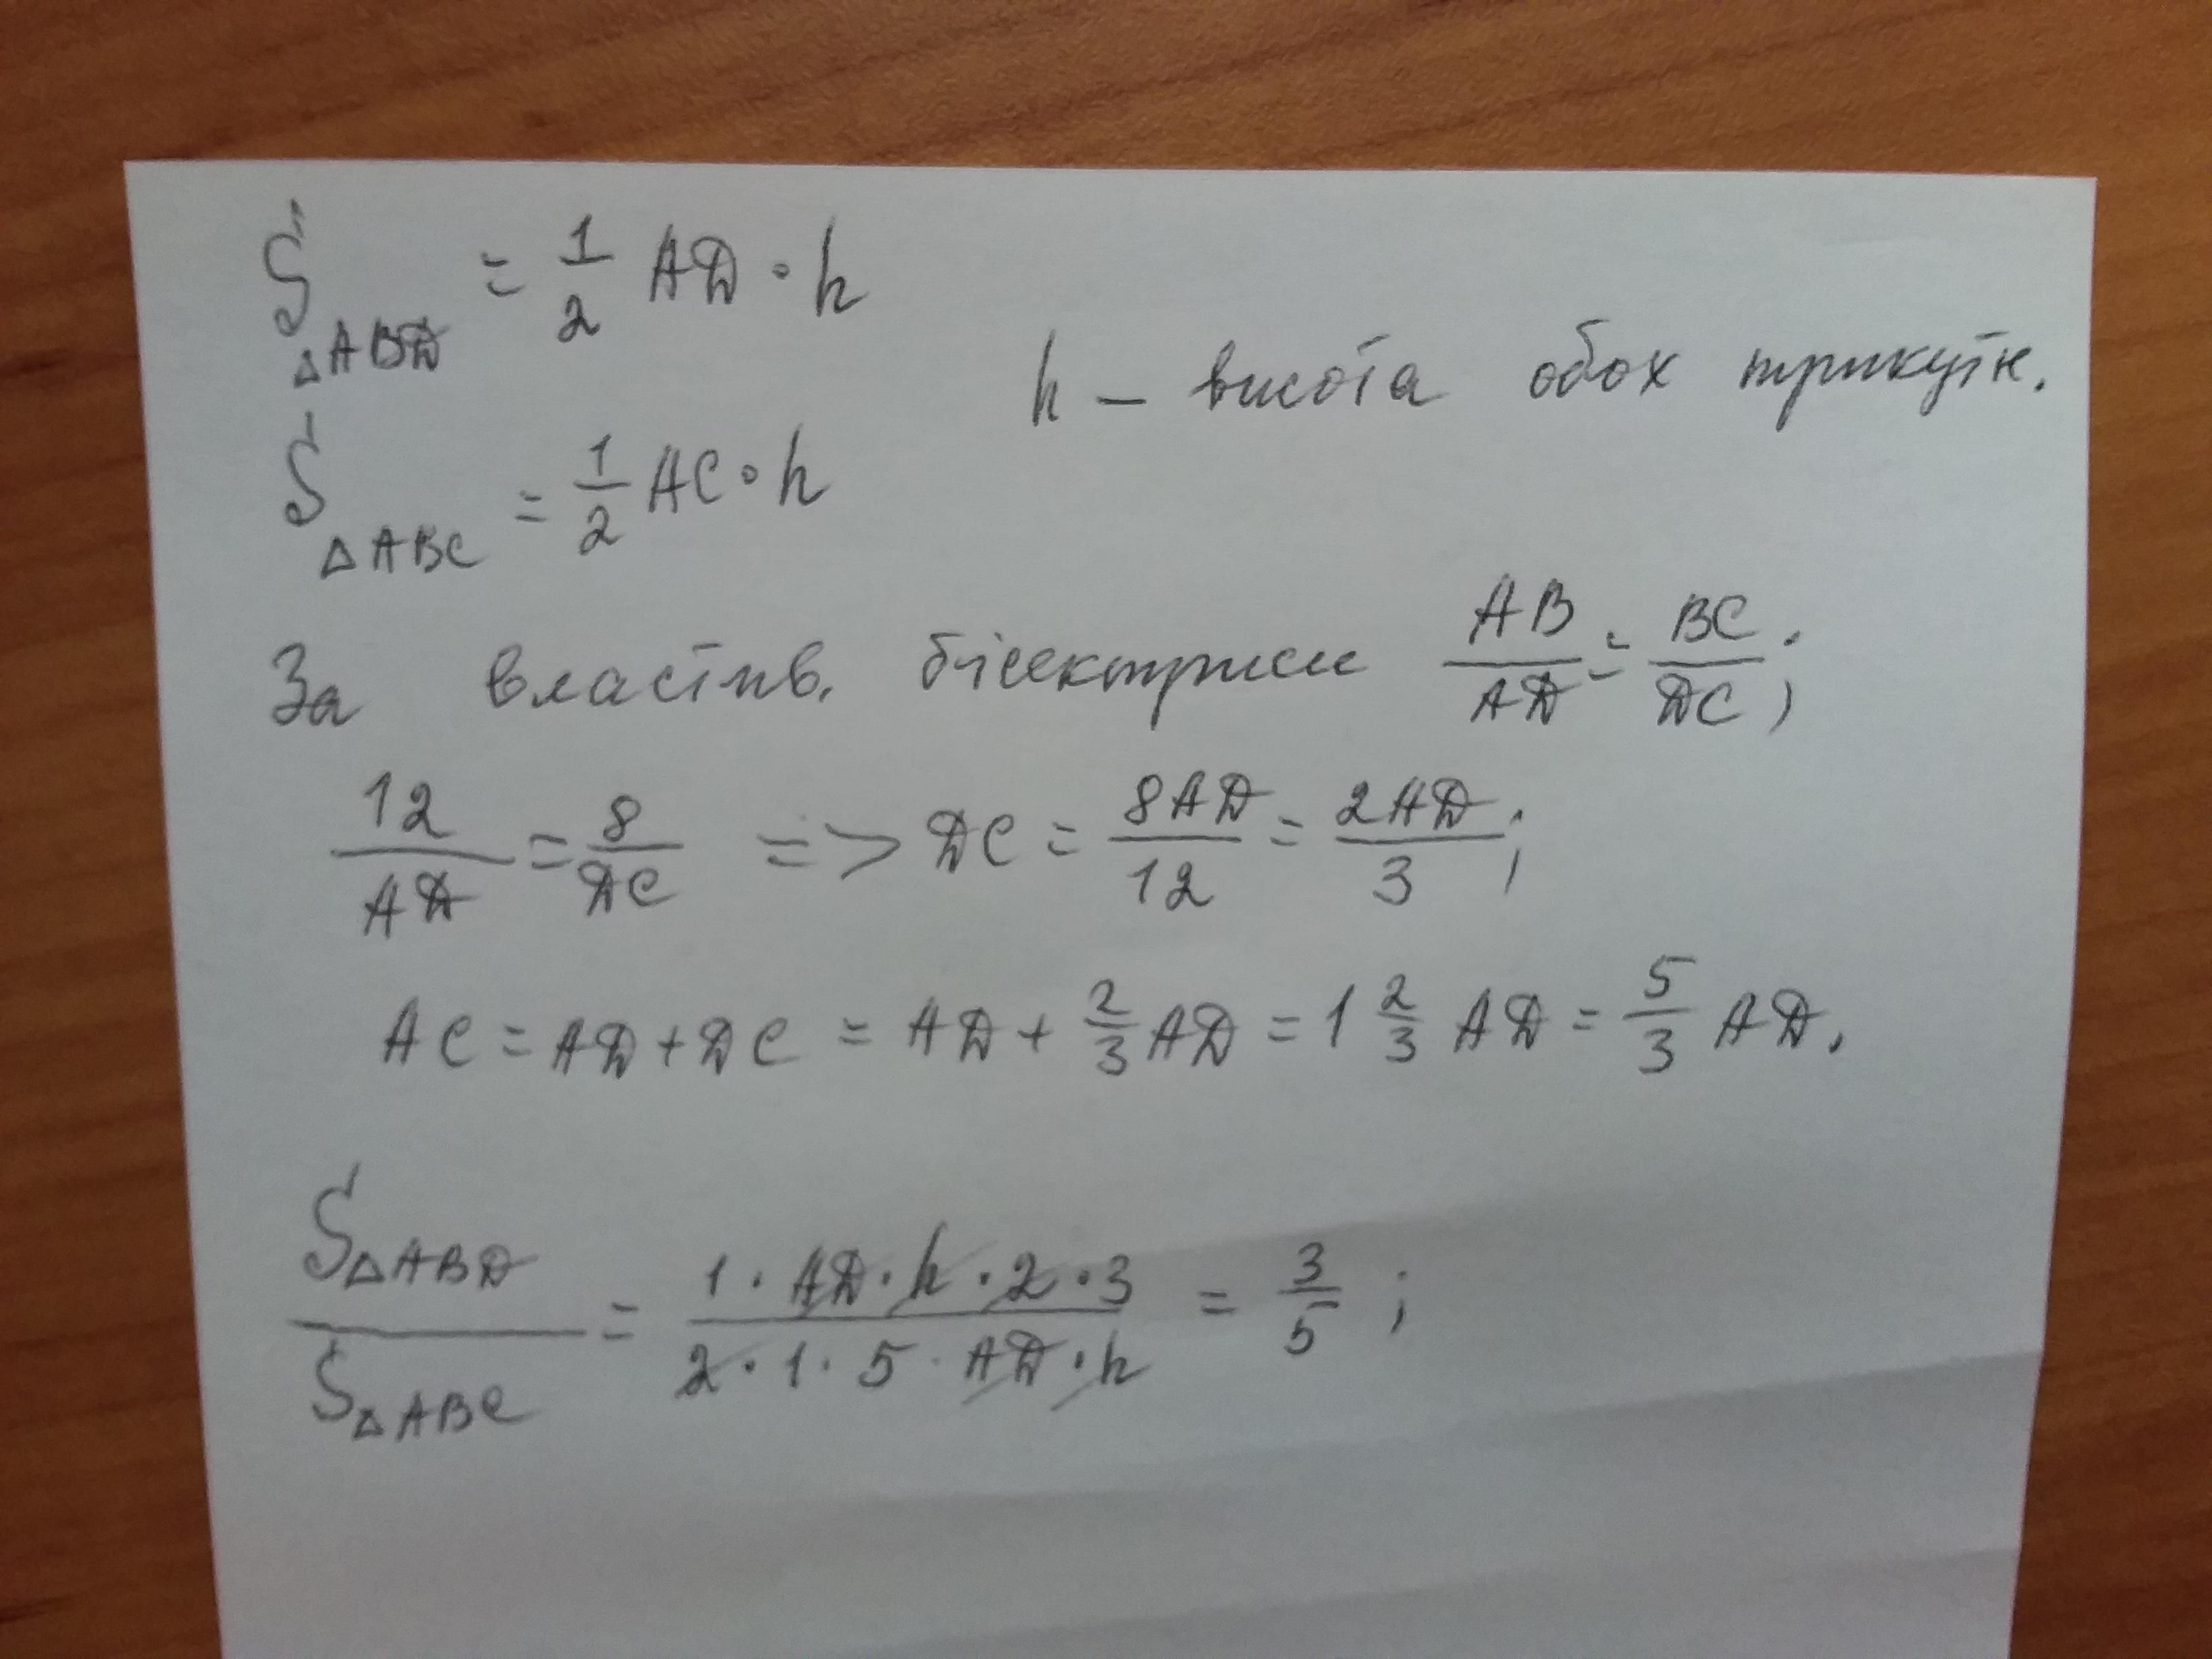 S△ABD = 1/2 AD · h
h – висота обох трикутн.
S△ABC = 1/2 AC · h
За властив. бісектриси AB/AD = BC/DC;
12/AD = 8/DC => DC = 8AD/12 = 2AD/3;
AC = AD + DC = AD + 2/3 AD = 1 2/3 AD = 5/3 AD.
S△ABD/S△ABC = 1 · AD · h · 2 · 3/2 · 1 · 5 · AD · h = 3/5;